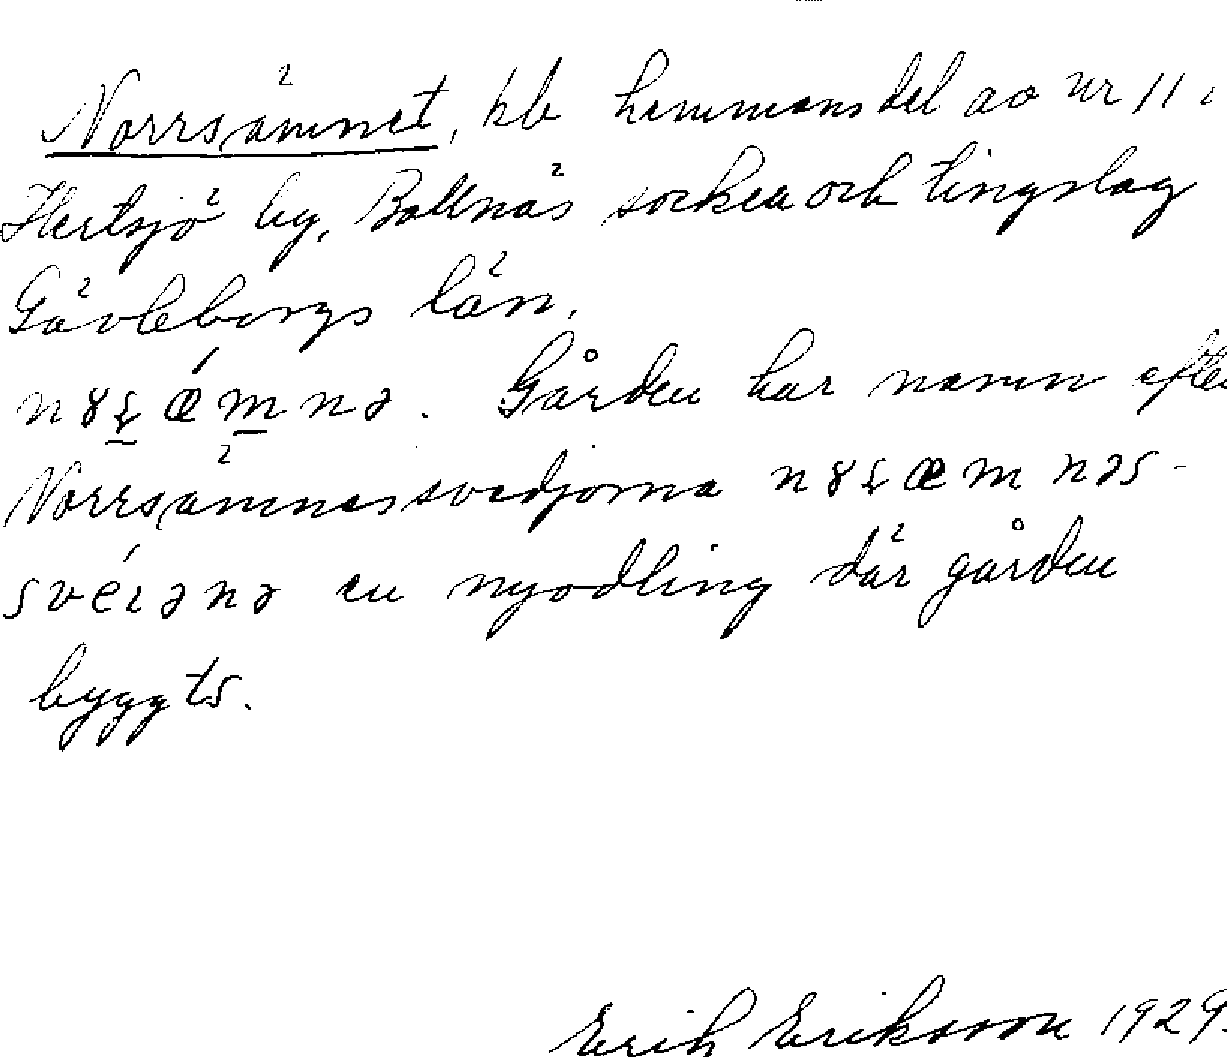 Norrsämnet, klb hemmansdel av nr 11 i
Hertsjö by, Bollnäs socken och tingslag
Gävleborgs län.
Gården har namn efter
Norrsämnessvedjorna
en nyodling där gården
byggts.
Erik Eriksson 1929.